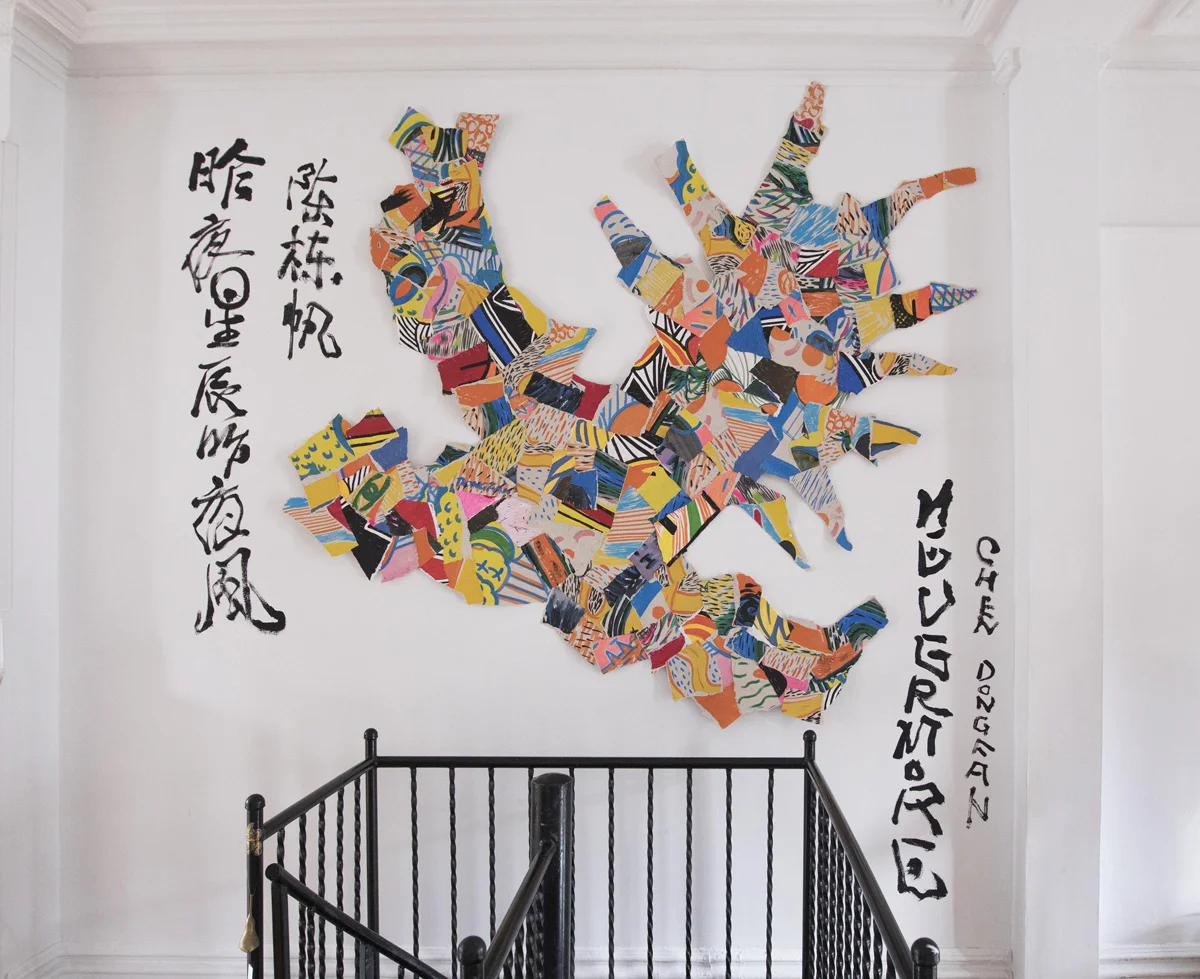 昨夜星辰昨夜風
陈栋帆
NEVERMORE
CHEN DONGFAN